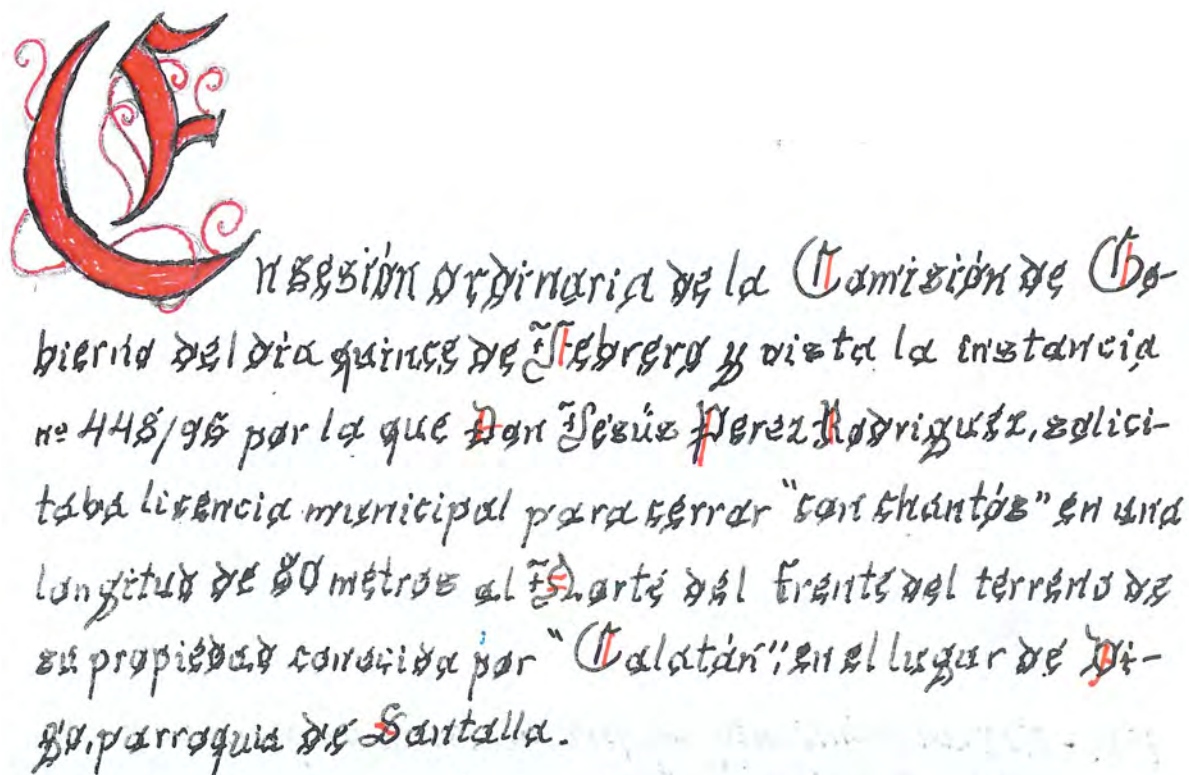 En sesión ordinaria de la Comisión de Go-
bierno del día quince de Febrero y vista la instancia
nº 448/96 por la que Don Jesús Perez Rodriguez, solici-
taba licencia municipal para cerrar "con chantos" en una
longitud de 80 metros al Norte del frente del terreno de
su propiedad conocida por "Calatán", en el lugar de Vi-
go, parroquia de Santalla.